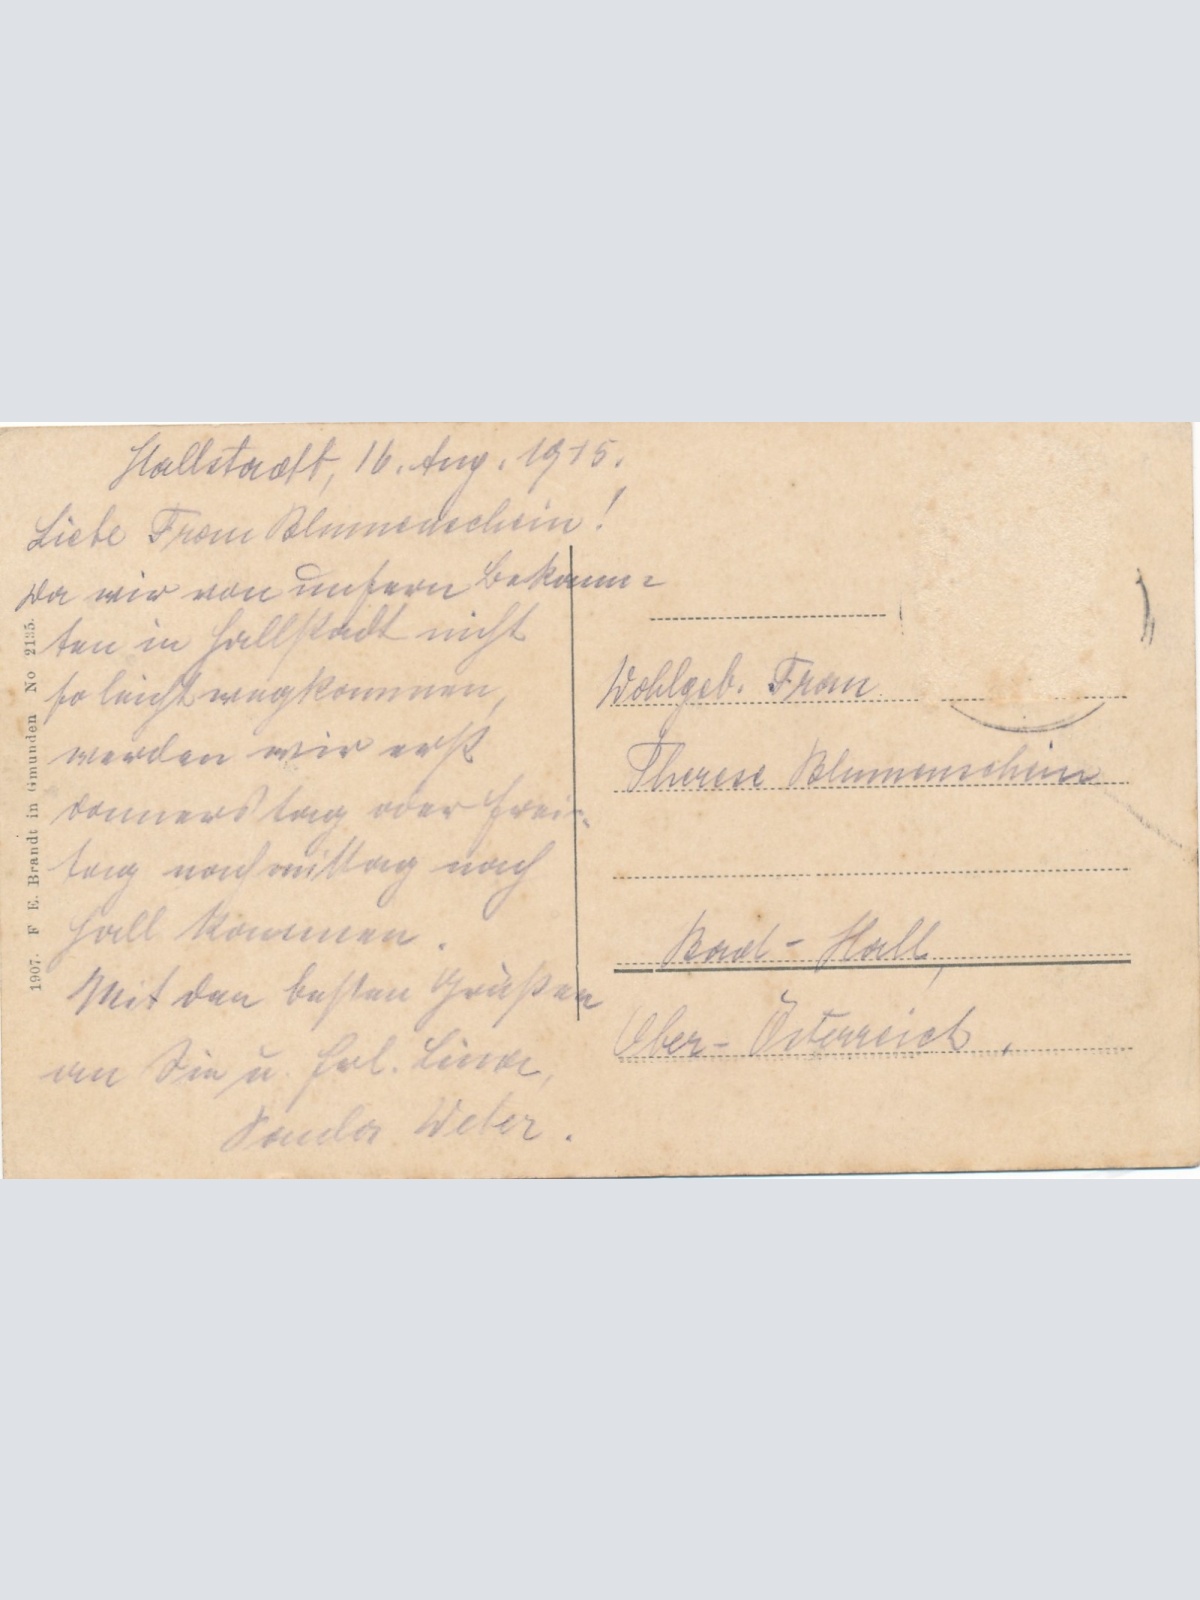 Hallstadt, 16. Aug. 1915.
Liebe Frau Blumenschein!
Da wir von unsern Bekann-
ten in Hallstadt nicht
so leicht wegkommen,
werden wir erst
Donnerstag oder Frei-
tag nachmittag nach
Hall kommen.
Mit den besten Grüßen
an Sie u. Frl. Lina,
Weber.
Wohlgeb. Frau
Therese Blumenschein
Bad-Hall,
Ober-Österreich.
1907. F. E. Brandt in Gmunden No 2135.